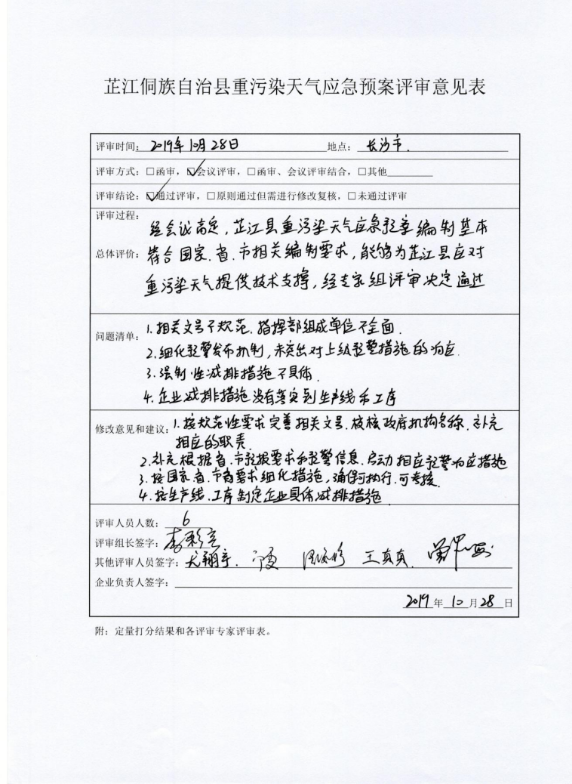 芷江侗族自治县重污染天气应急预案评审意见表
评审时间：2019年10月28日 地点：长沙市.
评审方式：□函审，☑会议评审，□函审、会议评审结合，□其他
评审结论：☑通过评审，□原则通过但需进行修改复核，□未通过评审
评审过程：
经会议商定，芷江县重污染天气应急预案编制基本
总体评价：符合国家、省、市相关编制要求，能够为芷江县应对
重污染天气提供技术支撑，经专家组评审决定通过
问题清单：1.相关文号不规范，指挥部组成单位不全面.
2.细化预警发布机制，未突出对上级预警措施的响应.
3.强制性减排措施不具体.
4.企业减排措施没有落实到生产线和工序
修改意见和建议：1.按规范性要求完善相关文号，核核政府机构名称，补充
相应的职责.
2.补充根据省、市预报要求和预警信息，启动相应预警响应措施
3.按国家、省、市有要求细化措施，确保可执行，可考核.
4.按生产线、工序制定企业具体减排措施
评审人员人数：6
评审组长签字：
其他评审人员签字： 王真真
企业负责人签字：
2019年10月28日
附：定量打分结果和各评审专家评审表。